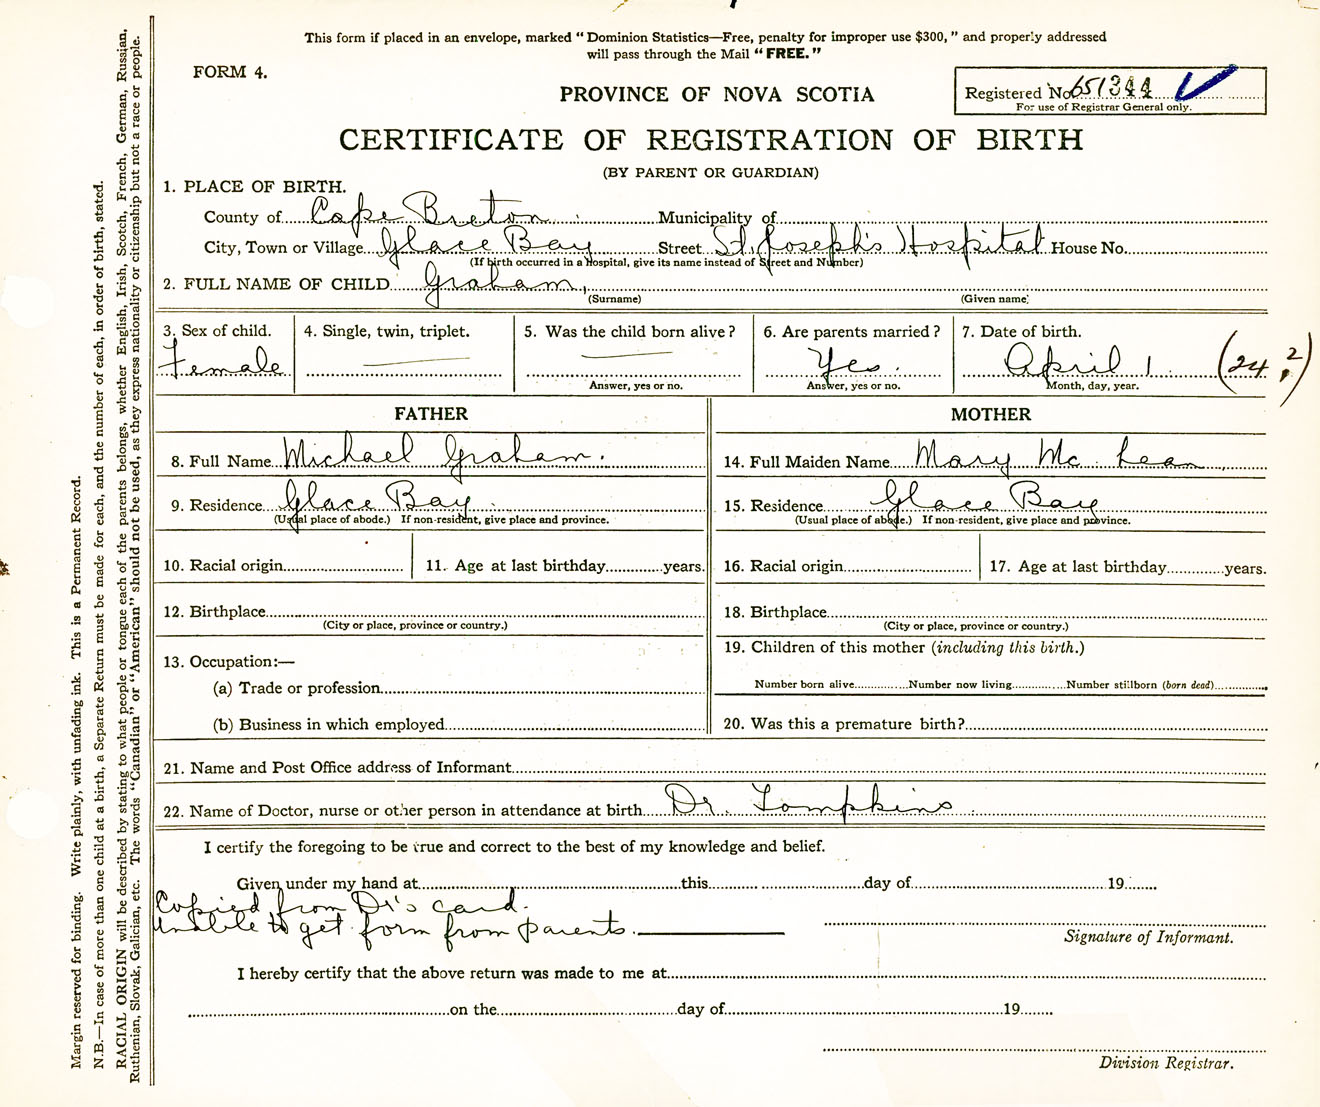 This form if placed in an envelope, marked "Dominion Statistics—Free, penalty for improper use $300," and properly addressed
will pass through the Mail "FREE."
FORM 4.
Registered No. 651344
For use of Registrar General only.
PROVINCE OF NOVA SCOTIA
CERTIFICATE OF REGISTRATION OF BIRTH
(BY PARENT OR GUARDIAN)
1. PLACE OF BIRTH.
County of Cape Breton Municipality of
City, Town or Village Glace Bay Street St. Joseph's Hospital House No.
(If birth occurred in a Hospital, give its name instead of Street and Number)
2. FULL NAME OF CHILD Graham,
(Surname) (Given name)
3. Sex of child. 4. Single, twin, triplet. 5. Was the child born alive? 6. Are parents married? 7. Date of birth.
Female — — Yes. April 1 (24?)
Answer, yes or no. Answer, yes or no. Month, day, year.
FATHER MOTHER
8. Full Name Michael Graham. 14. Full Maiden Name Mary Mc Lean
9. Residence Glace Bay. 15. Residence Glace Bay
(Usual place of abode.) If non-resident, give place and province. (Usual place of abode.) If non-resident, give place and province.
10. Racial origin 11. Age at last birthday years. 16. Racial origin 17. Age at last birthday years.
12. Birthplace 18. Birthplace
(City or place, province or country.) (City or place, province or country.)
13. Occupation:— 19. Children of this mother (including this birth.)
(a) Trade or profession Number born alive Number now living Number stillborn (born dead)
(b) Business in which employed 20. Was this a premature birth?
21. Name and Post Office address of Informant
22. Name of Doctor, nurse or other person in attendance at birth Dr. Tompkins
I certify the foregoing to be true and correct to the best of my knowledge and belief.
Given under my hand at this day of 19
Copied from Dr's card.
Unable to get form from parents.
Signature of Informant.
I hereby certify that the above return was made to me at
on the day of 19
Division Registrar.
Margin reserved for binding. Write plainly, with unfading ink. This is a Permanent Record.
N.B.—In case of more than one child at a birth, a Separate Return must be made for each, and the number of each, in order of birth, stated.
RACIAL ORIGIN will be described by stating to what people or tongue each of the parents belongs, whether English, Irish, Scotch, French, German, Russian,
Ruthenian, Slovak, Galician, etc. The words "Canadian" or "American" should not be used, as they express nationality or citizenship but not a race or people.